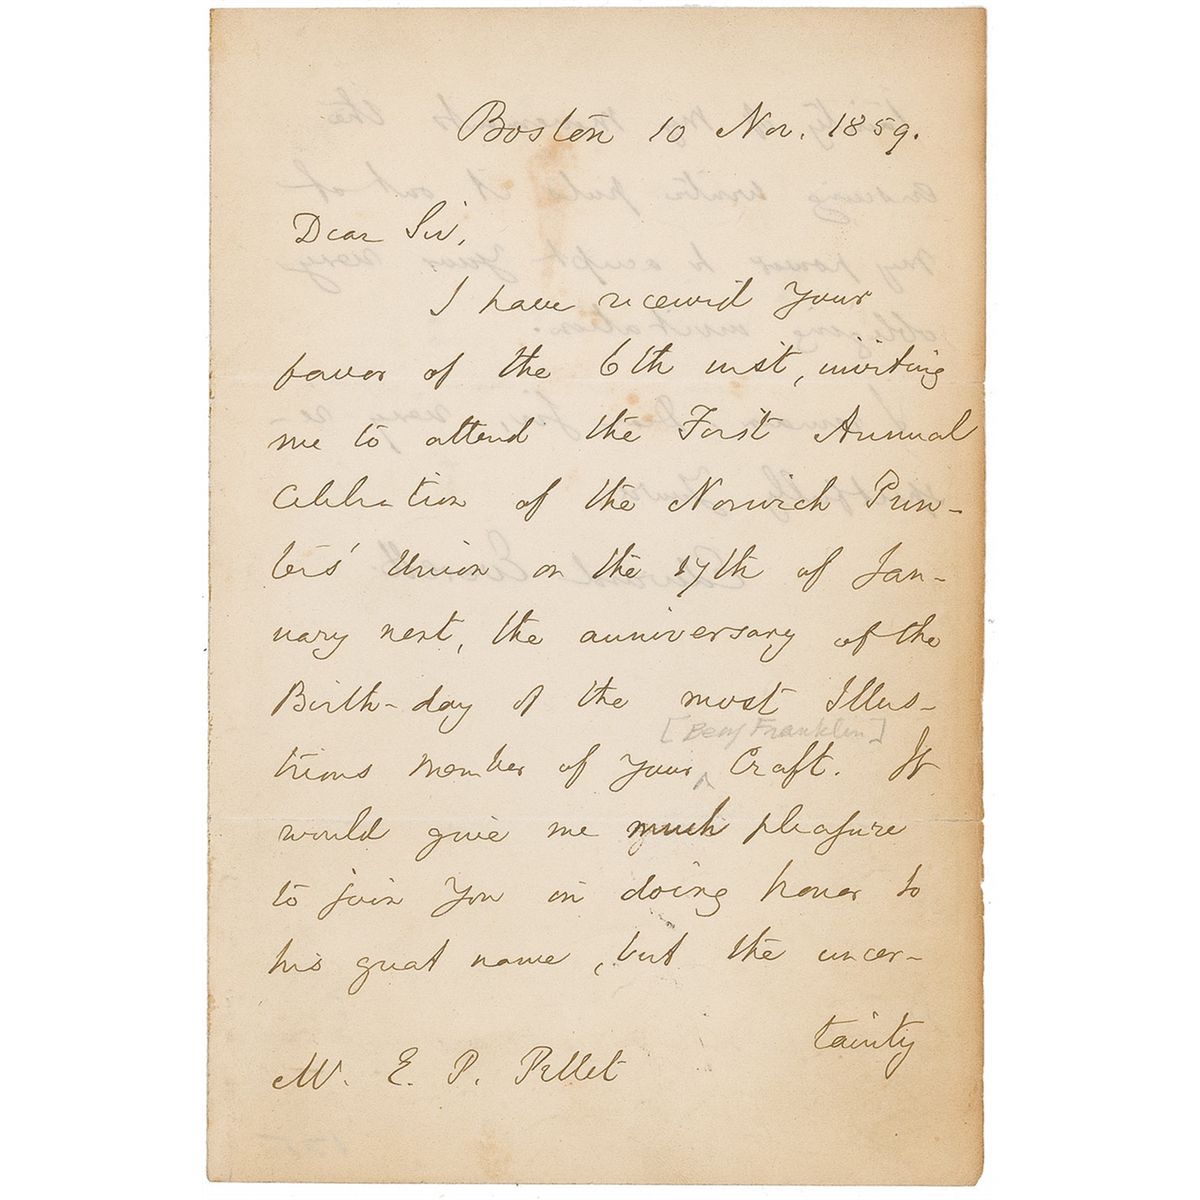 Boston 10 Nov. 1859.
Dear Sir,
I have received your
favor of the 6th inst, inviting
me to attend the First Annual
Celebration of the Norwich Prin-
ters' Union on the 17th of Jan-
uary next, the anniversary of the
Birth-day of the most Illus-
[Benj Franklin]
trious member of your ^ Craft. It
would give me much pleasure
to join you in doing honor to
his great name, but the uncer-
tainty
Mr. E. P. Pellet